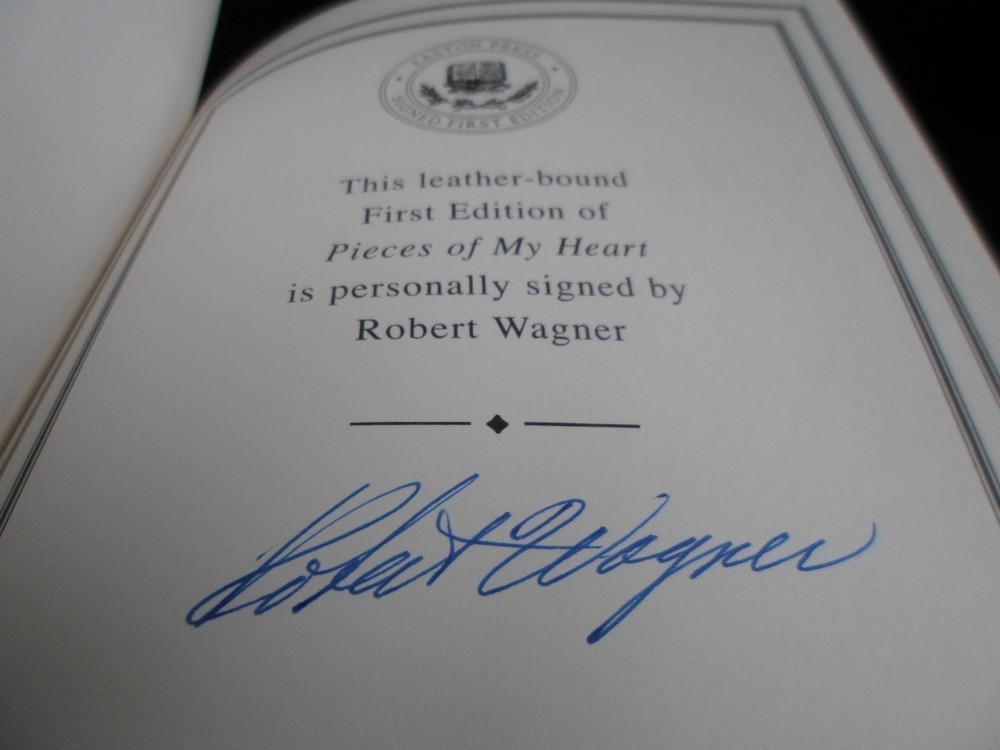 EASTON PRESS
SIGNED FIRST EDITION
This leather-bound
First Edition of
Pieces of My Heart
is personally signed by
Robert Wagner
Robert Wagner